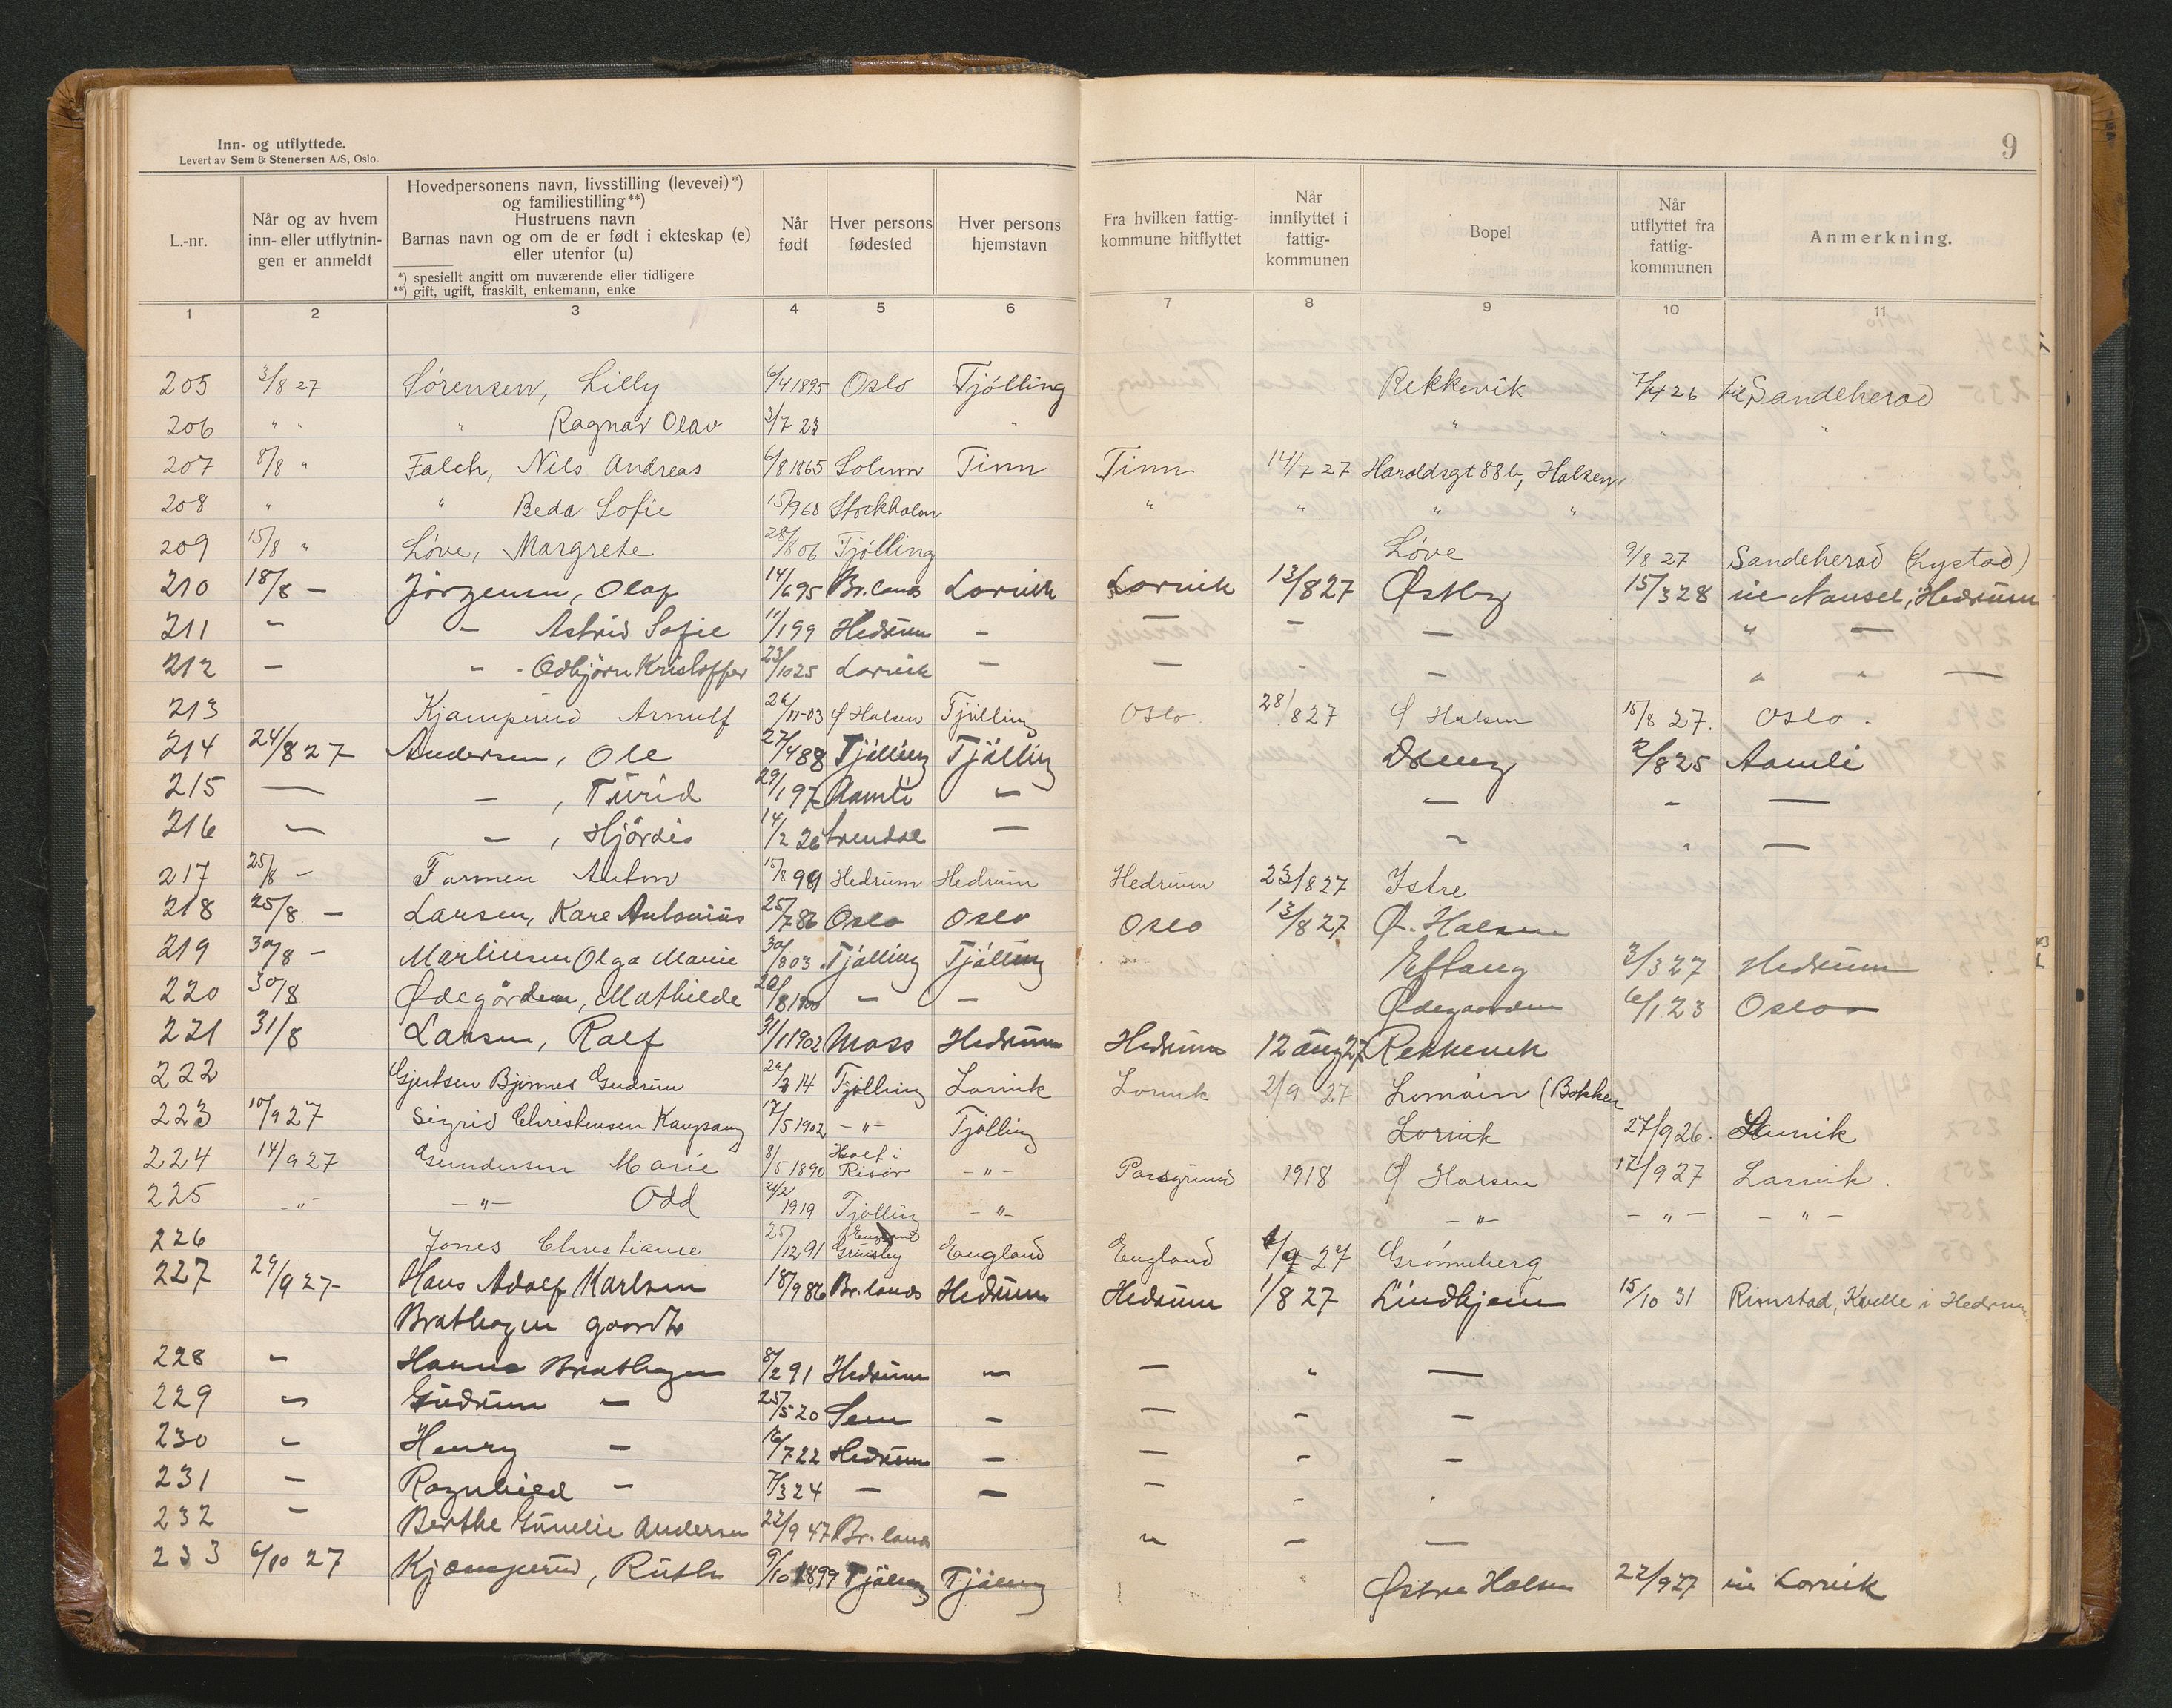 Inn- og utflyttede.
Levert av Sem & Stenersen A/S, Oslo.
9
L.-nr.
Når og av hvem inn- eller utflytnin-gen er anmeldt
Hovedpersonens navn, livsstilling (levevei)*) og familiestilling**)
Hustruens navn
Barnas navn og om de er født i ekteskap (e) eller utenfor (u)
*) spesielt angitt om nuværende eller tidligere
**) gift, ugift, fraskilt, enkemann, enke
Når født
Hver persons fødested
Hver persons hjemstavn
Fra hvilken fattig-kommune hitflyttet
Når innflyttet i fattig-kommunen
Bopel
Når utflyttet fra fattig-kommunen
Anmerkning.
1 2 3 4 5 6 7 8 9 10 11
205 3/8 27 Sörensen, Lilly 6/4 1895 Oslo Tjölling Rekkevik 7/4 26 til Sandeherad
206 " " " Ragnar Olav 3/7 23 " " " "
207 8/8 " Falch, Nils Andreas 6/8 1865 Solum Tinn Tinn 14/7 27 Haraldsgt 88b, Halsen
208 " " Beda Sofie 15/9 68 Stockholm " " " "
209 15/8 " Löve, Margrete 28/8 06 Tjölling Löve 9/8 27 Sandeherad (Nystad)
210 18/8 - Jörgensen, Olaf 14/6 95 Br.lanes Larvik Larvik 13/8 27 Østby 15/3 28 til Nanset, Hedrum
211 - - Astrid Sofie 11/1 99 Hedrum - - - - " -
212 - - - Odbjörn Kristoffer 23/10 25 Larvik - - - - " " -
213 Kjampurud Arnulf 26/11-03 Ø Halsen Tjölling Oslo. 28/8 27 Ø Halsen 15/8 27. Oslo.
214 24/8 27 Andersen, Ole 27/4 88 Tjölling Tjölling 2/8 25 Aamli
215 - - , Turid 29/1 97 Aamli - - - -
216 - - , Hjördis 14/2 26 Arendal - - " -
217 25/8 - Farmen Anton 15/8 99 Hedrum Hedrum Hedrum 23/8 27 Istre
218 25/8 - Larsen, Kare Antonius 25/7 86 Oslo Oslo Oslo 13/8 27 Ø. Halsen
219 30/8 - Martinsen Olga Marie 30/8 03 Tjölling Tjölling Eftang 3/3 27 Hedrum
220 30/8 Ødegården, Mathilde 20/8 1900 - - Ødegaarden 6/1 23 Oslo
221 31/8 Larsen, Ralf 31/1 1902 Moss Hedrum Hedrum 12 aug 27 Rekkevik
222 Gjertsen Bjönnes Gudrun 14 Tjölling Larvik Larvik 2/9 27 (Bakken
223 10/9 27 Sigrid Christensen Kaupang 17/5 1902 -"- Tjölling Larvik 27/9 26. Larvik
224 14/9 27 Gundersen Marie 8/5 1890 Holt i Risör -"- Porsgrund 1918 Ø Halsen 12/9 27 Larvik.
225 -"- -"- Odd 1919 Tjölling -"- -"- -"- -"-
226 Jones Christiane 25/12 91 England Grimsby England England 1/9 27 Grönneberg
227 29/9 27 Hans Adolf Karlsen 18/9 86 Br.lanes Hedrum Hedrum 1/8 27 Lindhjem 15/10 31 Rimstad, Kvelle i Hedrum.
Brathagen
228 " Hanna Brathagen 8/2 91 Hedrum - - " -
229 " Gudrun - 25/5 20 Sem - - - -
230 " Henry - 16/7 22 Hedrum - - - -
231 - Ragnhild - 7/3 24 - - - - "
232 - Berthe Gunelie Andersen 22/9 47 Br.lanes " - -
233 6/10 27 Kjæmperud, Ruth 9/10 1899 Tjölling Tjölling Østre Halsen 22/9 27 til Larvik